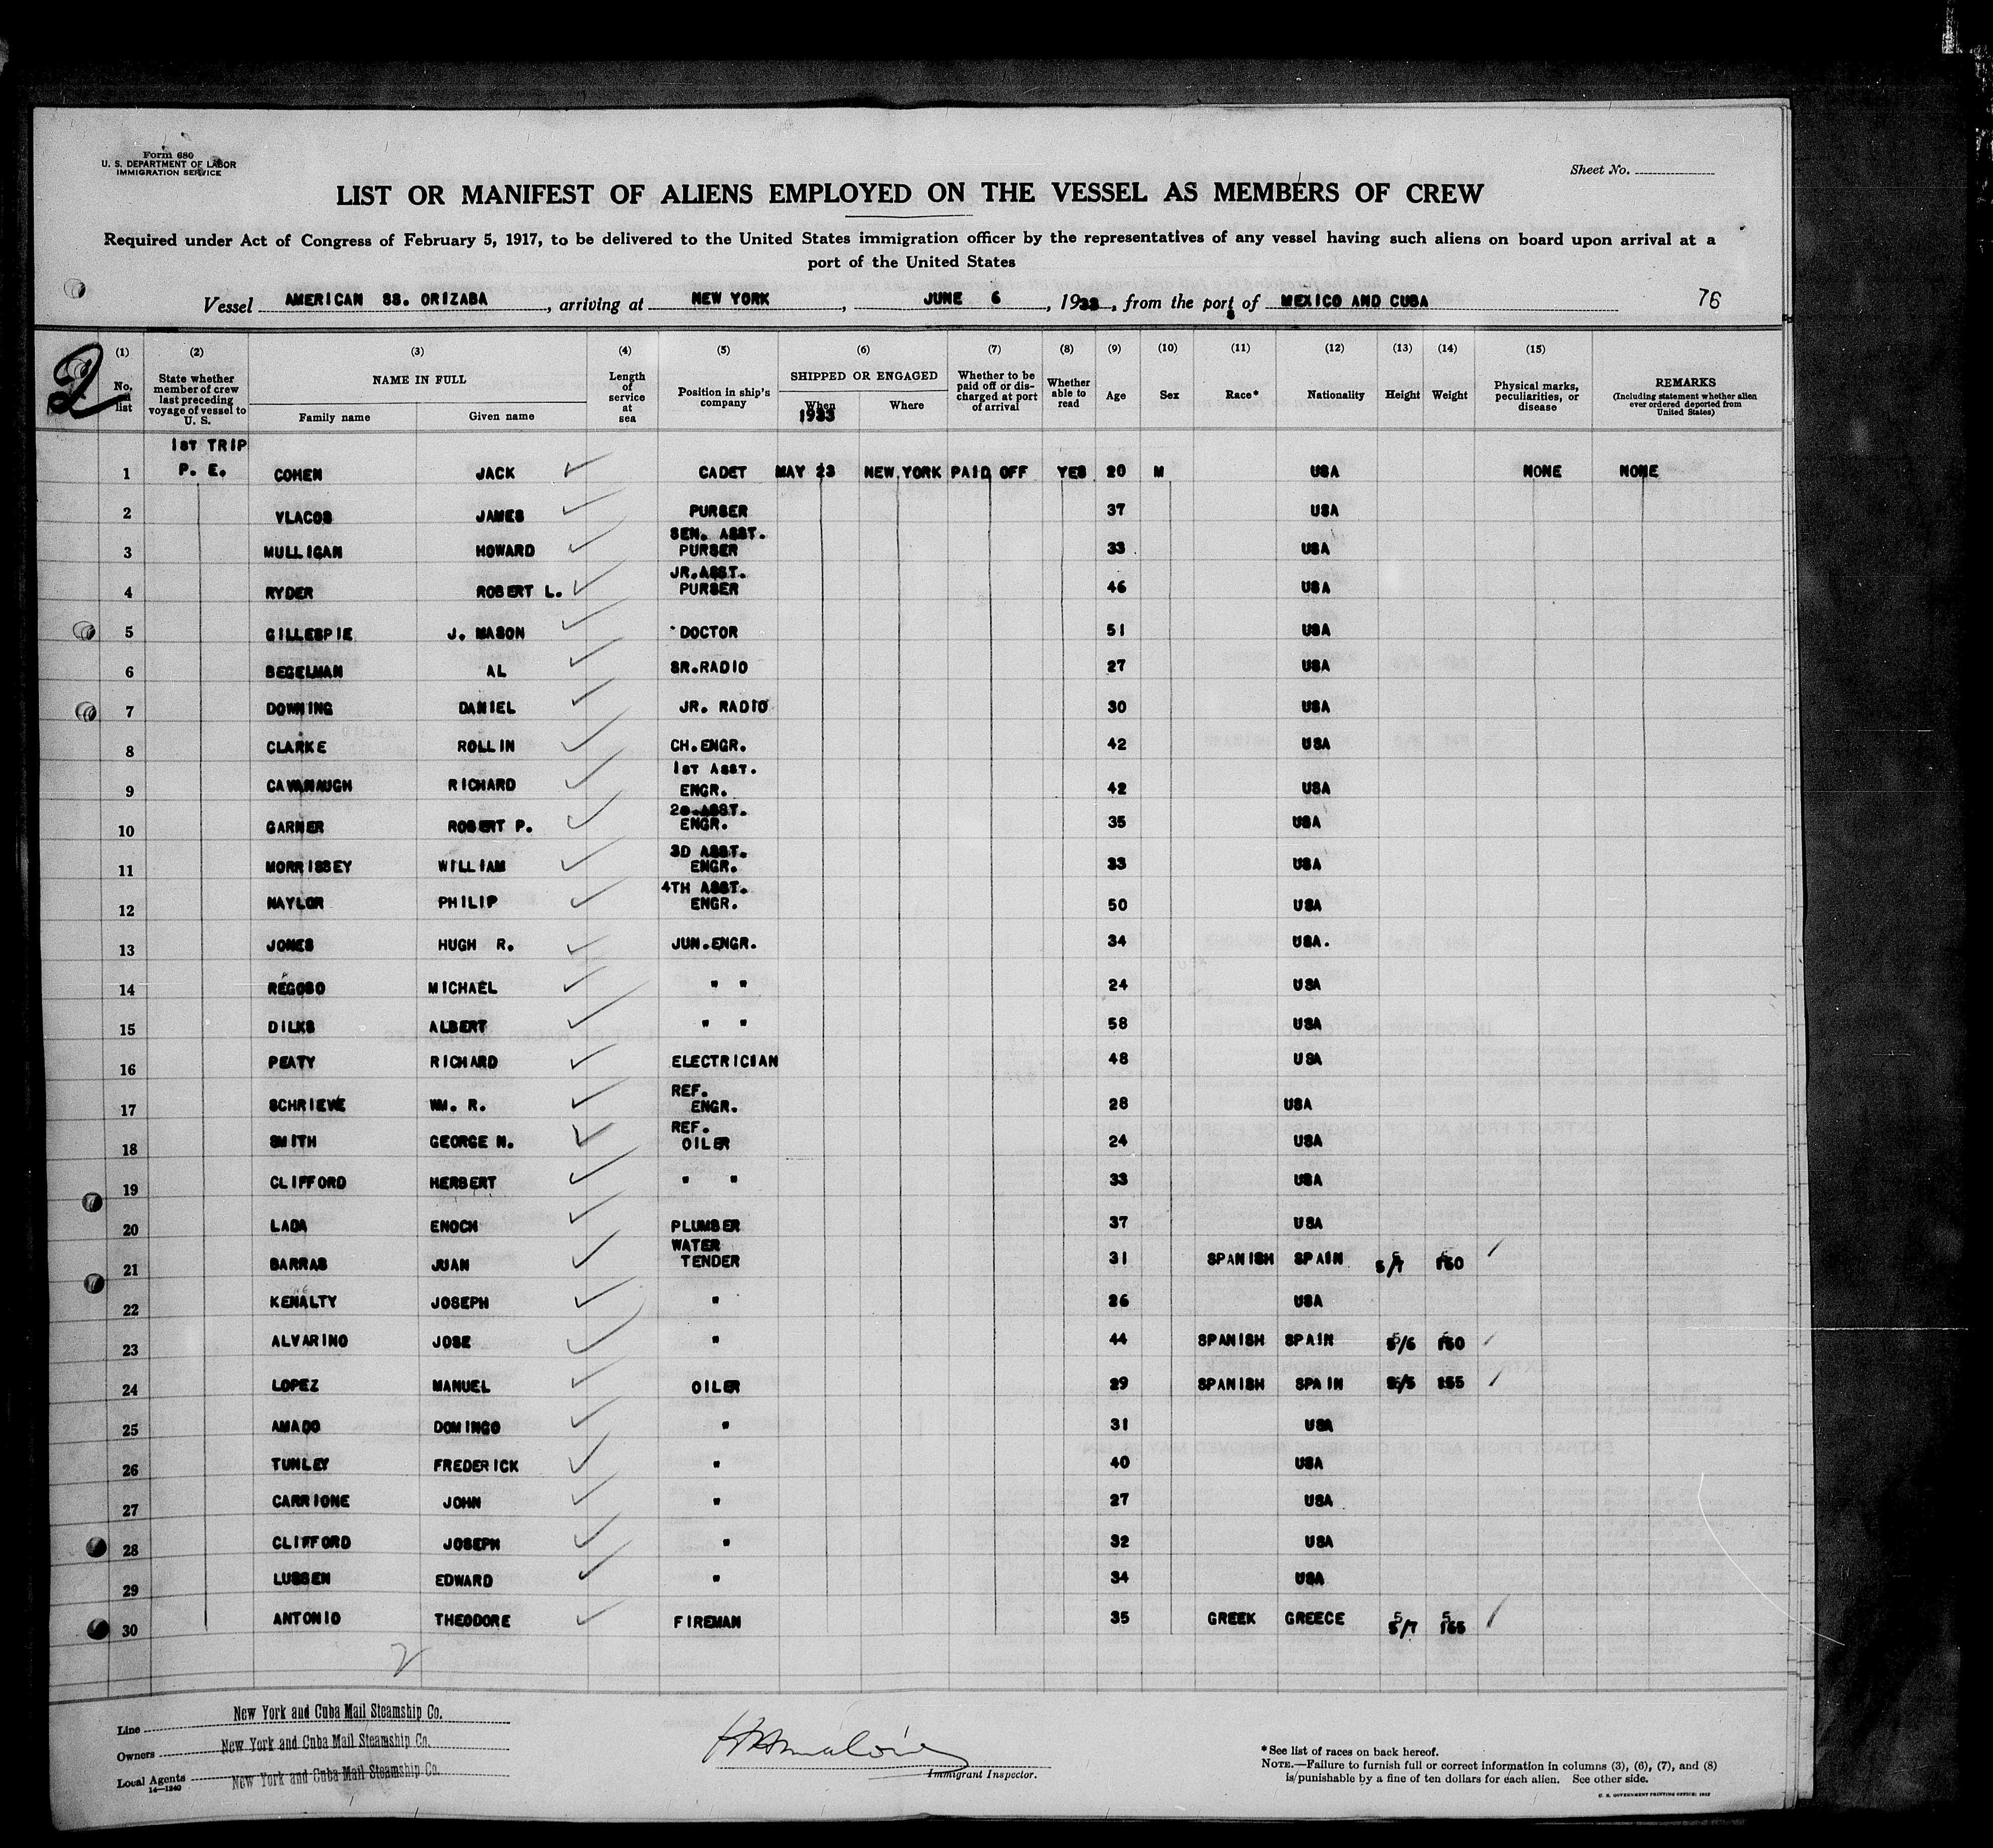 Form 680
U. S. DEPARTMENT OF LABOR
IMMIGRATION SERVICE
Sheet No.
LIST OR MANIFEST OF ALIENS EMPLOYED ON THE VESSEL AS MEMBERS OF CREW
Required under Act of Congress of February 5, 1917, to be delivered to the United States immigration officer by the representatives of any vessel having such aliens on board upon arrival at a
port of the United States
Vessel AMERICAN SS. ORIZABA, arriving at NEW YORK, JUNE 6, 1933, from the ports of MEXICO AND CUBA 76
2
(1) (2) (3) (4) (5) (6) (7) (8) (9) (10) (11) (12) (13) (14) (15)
No. list
State whether member of crew last preceding voyage of vessel to U. S.
NAME IN FULL
Family name Given name
Length of service at sea
Position in ship's company
SHIPPED OR ENGAGED
When Where
1933
Whether to be paid off or discharged at port of arrival
Whether able to read
Age Sex Race* Nationality Height Weight
Physical marks, peculiarities, or disease
REMARKS
(Including statement whether alien ever ordered deported from United States)
1ST TRIP
1 P. E. COHEN JACK CADET MAY 23 NEW YORK PAID OFF YES 20 M USA NONE NONE
2 VLACOS JAMES PURSER 37 USA
3 MULLIGAN HOWARD SEN. ASST. PURSER 33 USA
4 RYDER ROBERT L. JR.ASST. PURSER 46 USA
5 GILLESPIE J. MASON DOCTOR 51 USA
6 BEGELMAN AL SR.RADIO 27 USA
7 DOWNING DANIEL JR. RADIO 30 USA
8 CLARKE ROLLIN CH.ENGR. 42 USA
9 CAVANAUGH RICHARD 1ST ASST. ENGR. 42 USA
10 GARNER ROBERT P. 2D ASST. ENGR. 35 USA
11 MORRISSEY WILLIAM 3D ASST. ENGR. 33 USA
12 NAYLOR PHILIP 4TH ASST. ENGR. 50 USA
13 JONES HUGH R. JUN.ENGR. 34 USA.
14 REGOSO MICHAEL " " 24 USA
15 DILKS ALBERT " " 58 USA
16 PEATY RICHARD ELECTRICIAN 48 USA
17 SCHRIEVE WM. R. REF. ENGR. 28 USA
18 SMITH GEORGE N. REF. OILER 24 USA
19 CLIFFORD HERBERT " " 33 USA
20 LADA ENOCH PLUMBER 37 USA
21 BARRAS JUAN WATER TENDER 31 SPANISH SPAIN 5/7 160
22 KENALTY JOSEPH " 26 USA
23 ALVARINO JOSE " 44 SPANISH SPAIN 5/6 160
24 LOPEZ MANUEL OILER 29 SPANISH SPAIN 5/5 155
25 AMADO DOMINGO " 31 USA
26 TUNLEY FREDERICK " 40 USA
27 CARRIONE JOHN " 27 USA
28 CLIFFORD JOSEPH " 32 USA
29 LUSSEN EDWARD " 34 USA
30 ANTONIO THEODORE FIREMAN 35 GREEK GREECE 5/7 165
2
Line New York and Cuba Mail Steamship Co.
Owners New York and Cuba Mail Steamship Co.
Local Agents New York and Cuba Mail Steamship Co.
14—1240
Immigrant Inspector.
*See list of races on back hereof.
NOTE.—Failure to furnish full or correct information in columns (3), (6), (7), and (8)
is punishable by a fine of ten dollars for each alien. See other side.
U. S. GOVERNMENT PRINTING OFFICE: 1932